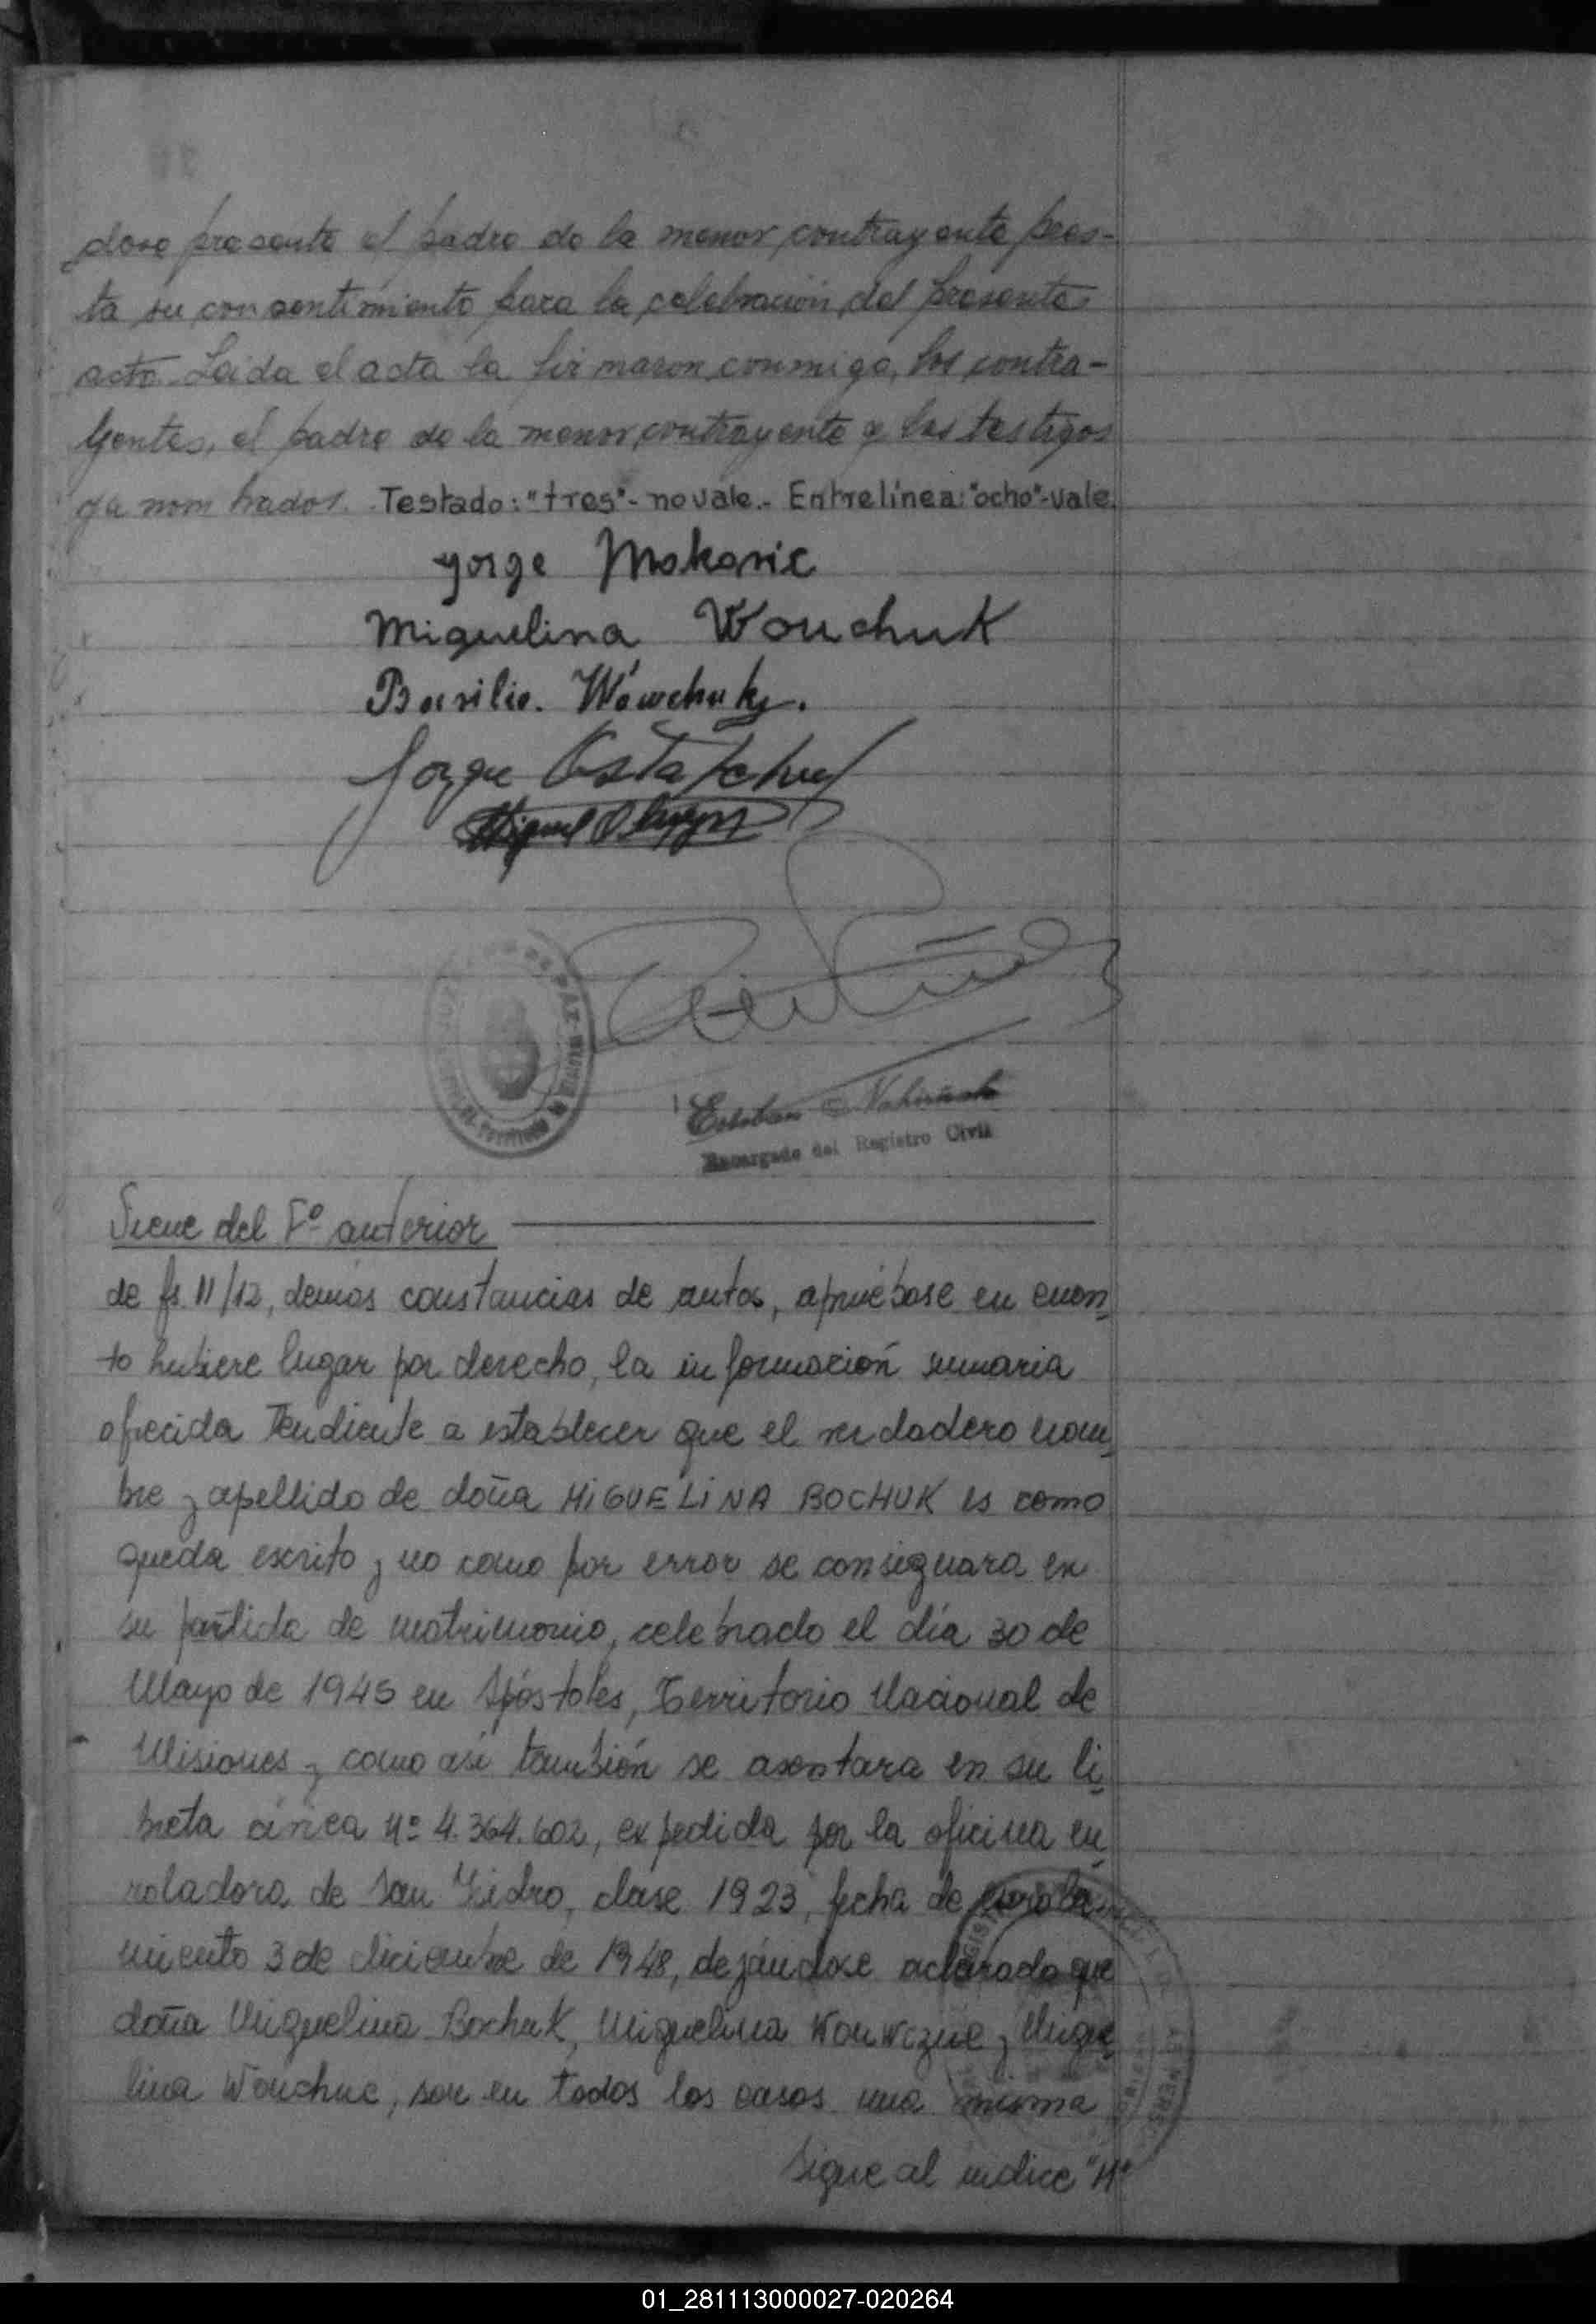 dose presente el padre de la menor contrayente pres-
ta su consentimiento para la celebración del presente
acto. Leida el acta la firmaron conmigo, los contra-
yentes, el padre de la menor contrayente y los testigos
ya nombrados. Testado: "tres"- no vale.- Entrelínea: "ocho"-vale.
Jorge Mokosic
Miguelina Wouchuk
Basilio. Wowchuk.
Jorge
Miguel
DE PAZ
Esteban
Encargado del Registro Civil
Viene del Fº anterior
de fs. 11/12, demás constancias de autos, apruébase en cuan
to hubiere lugar por derecho, la información sumaria
ofrecida Tendiente a establecer que el verdadero nom
bre y apellido de doña MIGUELINA BOCHUK es como
queda escrito y no como por error se consignara en
su partida de matrimonio, celebrado el día 30 de
Mayo de 1945 en Apóstoles, Territorio Nacional de
Misiones y como así también se asentara en su li
breta cívica nº 4.364.602, expedida por la oficina en
roladora de San Isidro, clase 1923, fecha de enrola
miento 3 de diciembre de 1948, dejándose aclarado que
doña Miguelina Bochuk, Miguelina Wouwczuc y Migue
lina Wouchuc, son en todos los casos una misma
Sigue al indice "M"
01_281113000027-020264